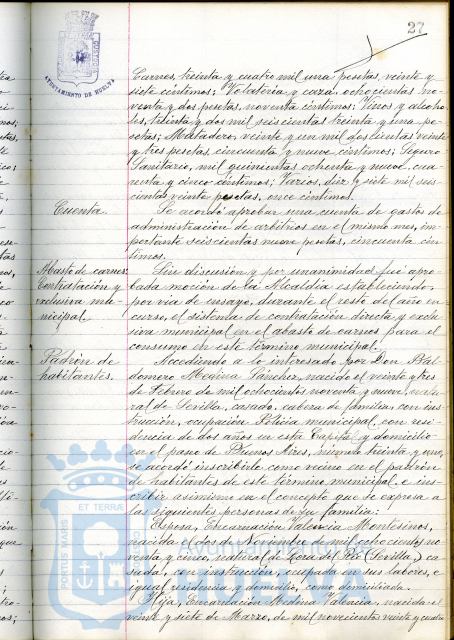 27
AYUNTAMIENTO DE HUELVA
Carnes, treinta y cuatro mil una pesetas, veinte y
siete céntimos; Volatería y caza, ochocientas no-
venta y dos pesetas, noventa céntimos; Vinos y alcoho-
les, treinta y dos mil seiscientas treinta y una pe-
setas; Matadero, veinte y un mil doscientas veinte
y tres pesetas, cincuenta y nueve céntimos; Seguro
Sanitario, mil quinientas ochenta y nueve, cua-
renta y cinco céntimos; Varios, diez y siete mil seis-
cientas veinte pesetas, once céntimos.
Cuenta. Se acordó aprobar una cuenta de gastos de
administración de arbitrios en el mismo mes, im-
portante seiscientas nueve pesetas, cincuenta cén-
timos.
Abasto de carnes: Sin discusión y por unanimidad fué apro-
Contratación y bada moción de la Alcaldía estableciendo,
exclusiva mu- por vía de ensayo, durante el resto del año en
nicipal. curso, el sistema de contratación directa y exclu-
siva municipal en el abasto de carnes para el
consumo en este término municipal.
Padrón de Accediendo a lo interesado por Don Bal-
habitantes. domero Medina Sánchez, nacido el veinte y tres
de Febrero de mil ochocientos noventa y nueve, natu-
ral de Sevilla, casado, cabeza de familia, con ins-
trucción, ocupación Policía municipal, con resi-
dencia de dos años en esta Capital y domicilio
en el paseo de Buenos Aires, número treinta y uno,
se acordó inscribirle como vecino en el padrón
de habitantes de este término municipal e ins-
cribir asimismo en el concepto que se expresa a
las siguientes personas de su familia:
Esposa, Encarnación Valencia Montesinos,
nacida el dos de Noviembre de mil ochocientos no-
venta y cinco, natural de Lora del Río (Sevilla), ca-
sada, con instrucción, ocupada en sus labores, e
igual residencia y domicilio, como domiciliada.
Hija, Encarnación Medina Valencia, nacida el
veinte y siete de Marzo, de mil novecientos veinte y cuatro
PORTUS MARIS ET TERRA